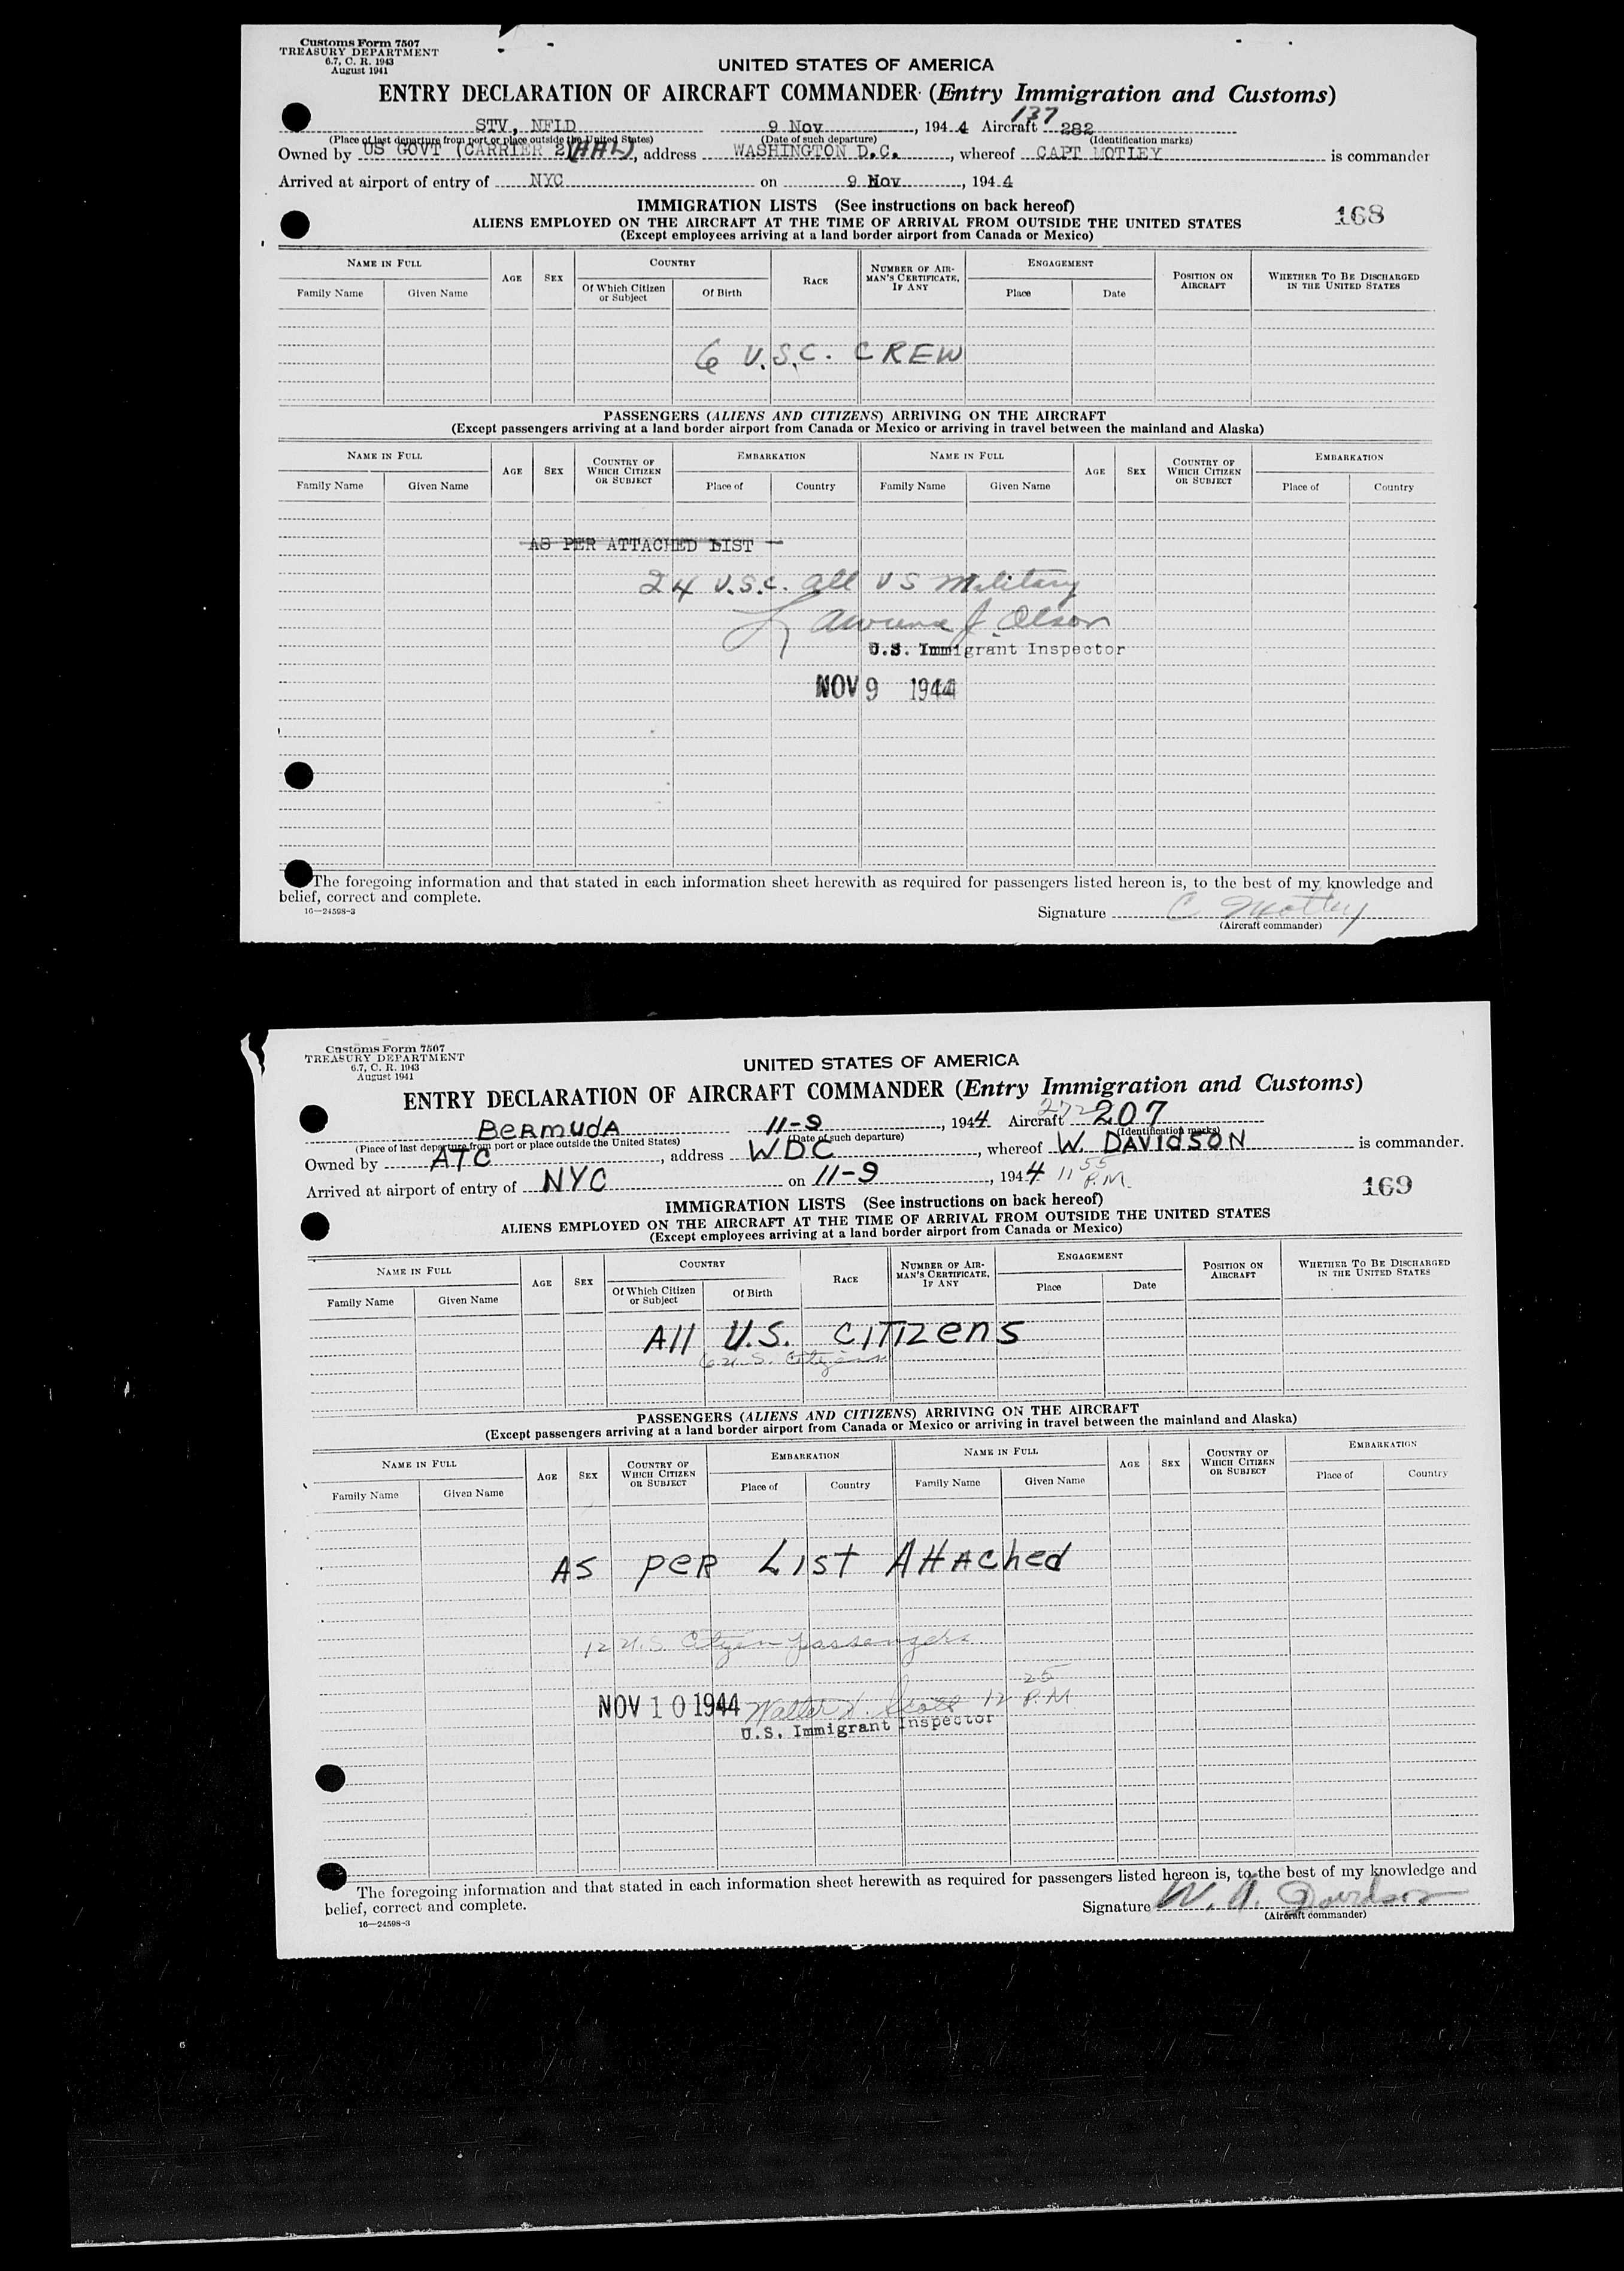 Customs Form 7507
TREASURY DEPARTMENT
6.7, C. R. 1943
August 1941
UNITED STATES OF AMERICA
ENTRY DECLARATION OF AIRCRAFT COMMANDER (Entry Immigration and Customs)
137
STV, NFLD 9 Nov , 194 4 Aircraft 282
(Place of last departure from port or place outside the United States) (Date of such departure) (Identification marks)
Owned by US GOVT (CARRIER 2) , address WASHINGTON D.C. , whereof CAPT MOTLEY is commander
Arrived at airport of entry of NYC on 9 Nov , 194 4
IMMIGRATION LISTS (See instructions on back hereof)
168
ALIENS EMPLOYED ON THE AIRCRAFT AT THE TIME OF ARRIVAL FROM OUTSIDE THE UNITED STATES
(Except employees arriving at a land border airport from Canada or Mexico)
NAME IN FULL AGE SEX COUNTRY RACE NUMBER OF AIRMAN'S CERTIFICATE, IF ANY ENGAGEMENT POSITION ON AIRCRAFT WHETHER TO BE DISCHARGED IN THE UNITED STATES
Family Name Given Name Of Which Citizen or Subject Of Birth Place Date
6 U.S.C. CREW
PASSENGERS (ALIENS AND CITIZENS) ARRIVING ON THE AIRCRAFT
(Except passengers arriving at a land border airport from Canada or Mexico or arriving in travel between the mainland and Alaska)
NAME IN FULL AGE SEX COUNTRY OF WHICH CITIZEN OR SUBJECT EMBARKATION NAME IN FULL AGE SEX COUNTRY OF WHICH CITIZEN OR SUBJECT EMBARKATION
Family Name Given Name Place of Country Family Name Given Name Place of Country
AS PER ATTACHED LIST
24 U.S.C. all US Military
Lawrence J. Olson
U.S. Immigrant Inspector
NOV 9 1944
The foregoing information and that stated in each information sheet herewith as required for passengers listed hereon is, to the best of my knowledge and
belief, correct and complete.
16—24598-3
Signature C Motley
(Aircraft commander)
Customs Form 7507
TREASURY DEPARTMENT
6.7, C. R. 1943
August 1941
UNITED STATES OF AMERICA
ENTRY DECLARATION OF AIRCRAFT COMMANDER (Entry Immigration and Customs)
BERMUDA 11-9 , 194 4 Aircraft 272 207
(Place of last departure from port or place outside the United States) (Date of such departure) (Identification marks)
Owned by ATC , address WDC , whereof W. DAVIDSON is commander.
Arrived at airport of entry of NYC on 11-9 , 194 4 11 55 P.M.
IMMIGRATION LISTS (See instructions on back hereof)
169
ALIENS EMPLOYED ON THE AIRCRAFT AT THE TIME OF ARRIVAL FROM OUTSIDE THE UNITED STATES
(Except employees arriving at a land border airport from Canada or Mexico)
NAME IN FULL AGE SEX COUNTRY RACE NUMBER OF AIRMAN'S CERTIFICATE, IF ANY ENGAGEMENT POSITION ON AIRCRAFT WHETHER TO BE DISCHARGED IN THE UNITED STATES
Family Name Given Name Of Which Citizen or Subject Of Birth Place Date
All U.S. CITIZENS
6 U.S. Citizens
PASSENGERS (ALIENS AND CITIZENS) ARRIVING ON THE AIRCRAFT
(Except passengers arriving at a land border airport from Canada or Mexico or arriving in travel between the mainland and Alaska)
NAME IN FULL AGE SEX COUNTRY OF WHICH CITIZEN OR SUBJECT EMBARKATION NAME IN FULL AGE SEX COUNTRY OF WHICH CITIZEN OR SUBJECT EMBARKATION
Family Name Given Name Place of Country Family Name Given Name Place of Country
AS PER LIST Attached
12 U.S. Citizen passengers
NOV 10 1944 Walter Scott 12 25 P.M
U.S. Immigrant Inspector
The foregoing information and that stated in each information sheet herewith as required for passengers listed hereon is, to the best of my knowledge and
belief, correct and complete.
16—24598-3
Signature W. A. Davidson
(Aircraft commander)